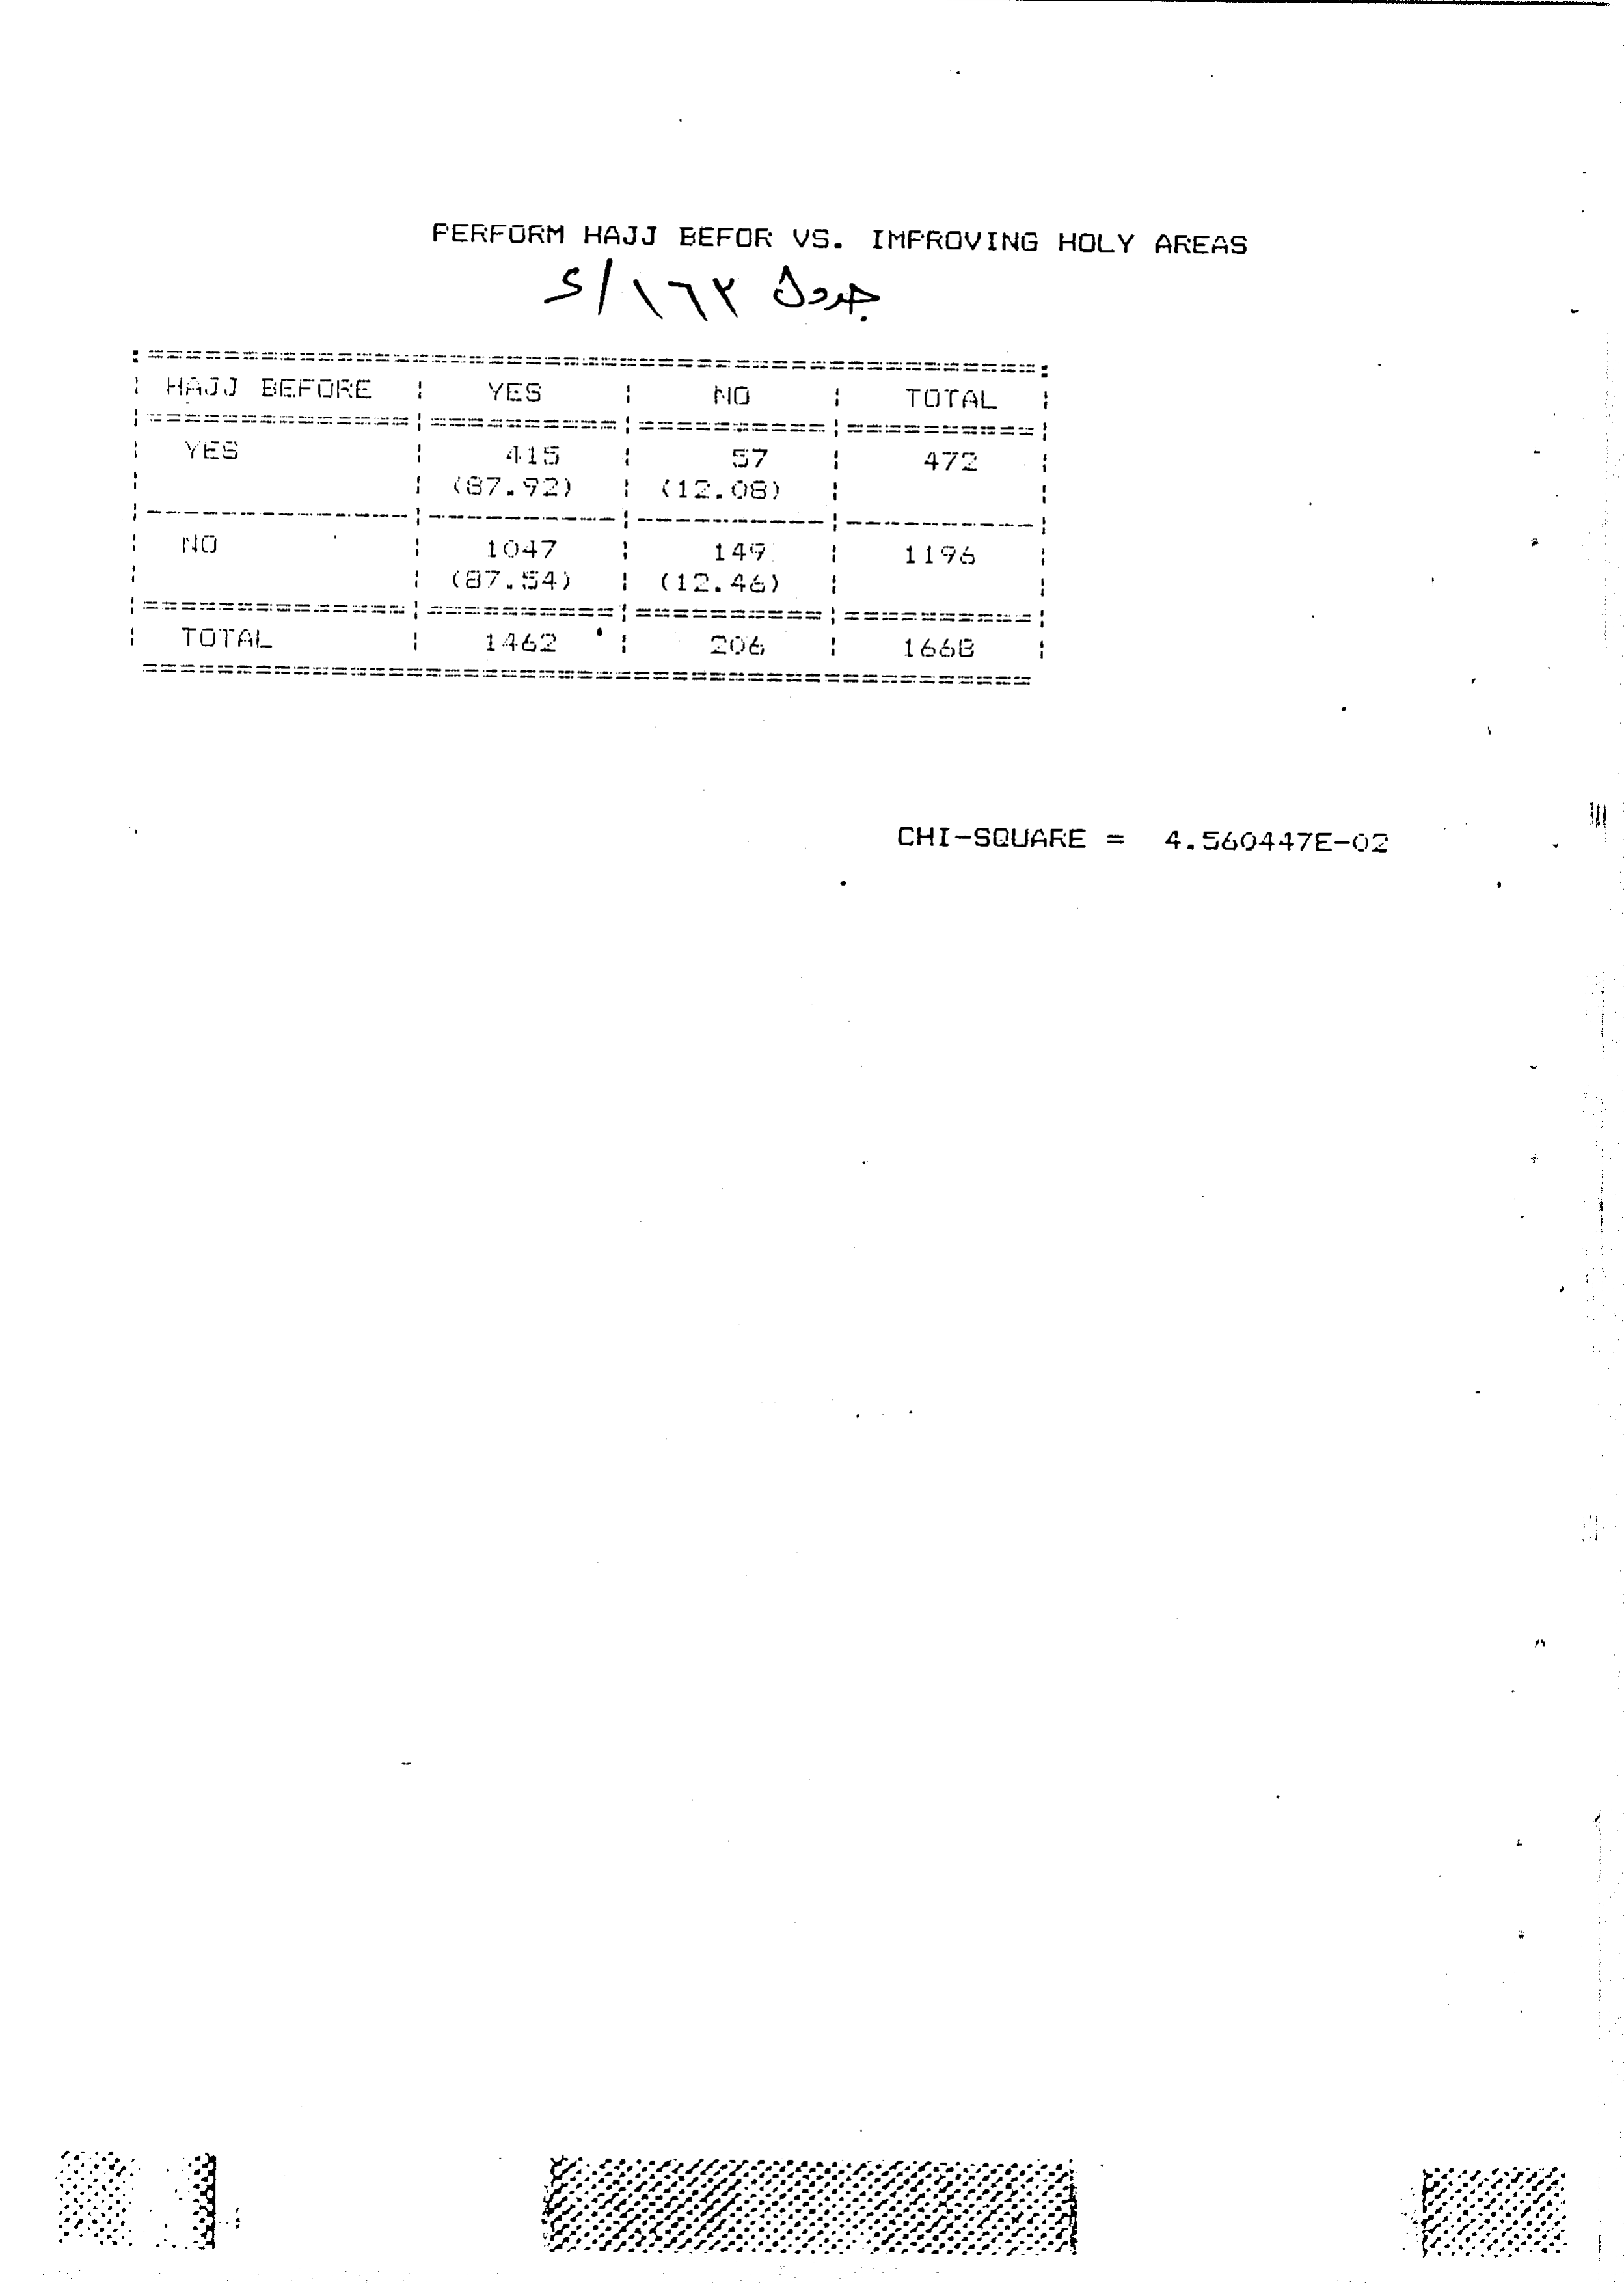 PERFORM HAJJ BEFOR VS. IMPROVING HOLY AREAS
جدول ١٦٢/ک
HAJJ BEFORE YES NO TOTAL
YES 415 57 472
(87.92) (12.08)
NO 1047 149 1196
(87.54) (12.46)
TOTAL 1462 206 1668
CHI-SQUARE = 4.560447E-02